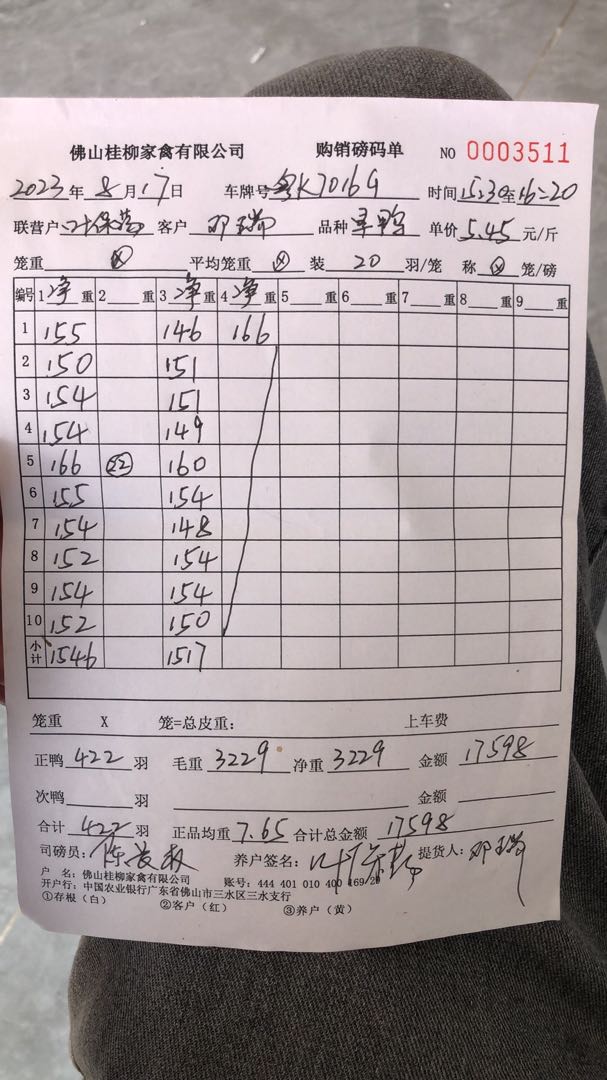 佛山桂柳家禽有限公司 购销磅码单 NO 0003511
2023年8月17日 车牌号粤K7016G 时间15:30至16:20
联营户叶保 客户邓瑞 品种旱鸭 单价5.45元/斤
笼重 平均笼重 装20羽/笼 称 笼/磅
编号 1净重 2重 3净重 4净重 5重 6重 7重 8重 9重
1 155 146 166
2 150 151
3 154 151
4 154 149
5 166 22 160
6 155 154
7 154 148
8 152 154
9 154 154
10 152 150
小计 1546 1517
笼重 X 笼=总皮重: 上车费
正鸭422羽 毛重3229 净重3229 金额17598
次鸭 羽 金额
合计422羽 正品均重7.65 合计总金额17598
司磅员:陈 养户签名: 提货人:邓瑞
户 名:佛山桂柳家禽有限公司 账号:444 401 010 400 169/20
开户行:中国农业银行广东省佛山市三水区三水支行
①存根(白) ②客户(红) ③养户(黄)